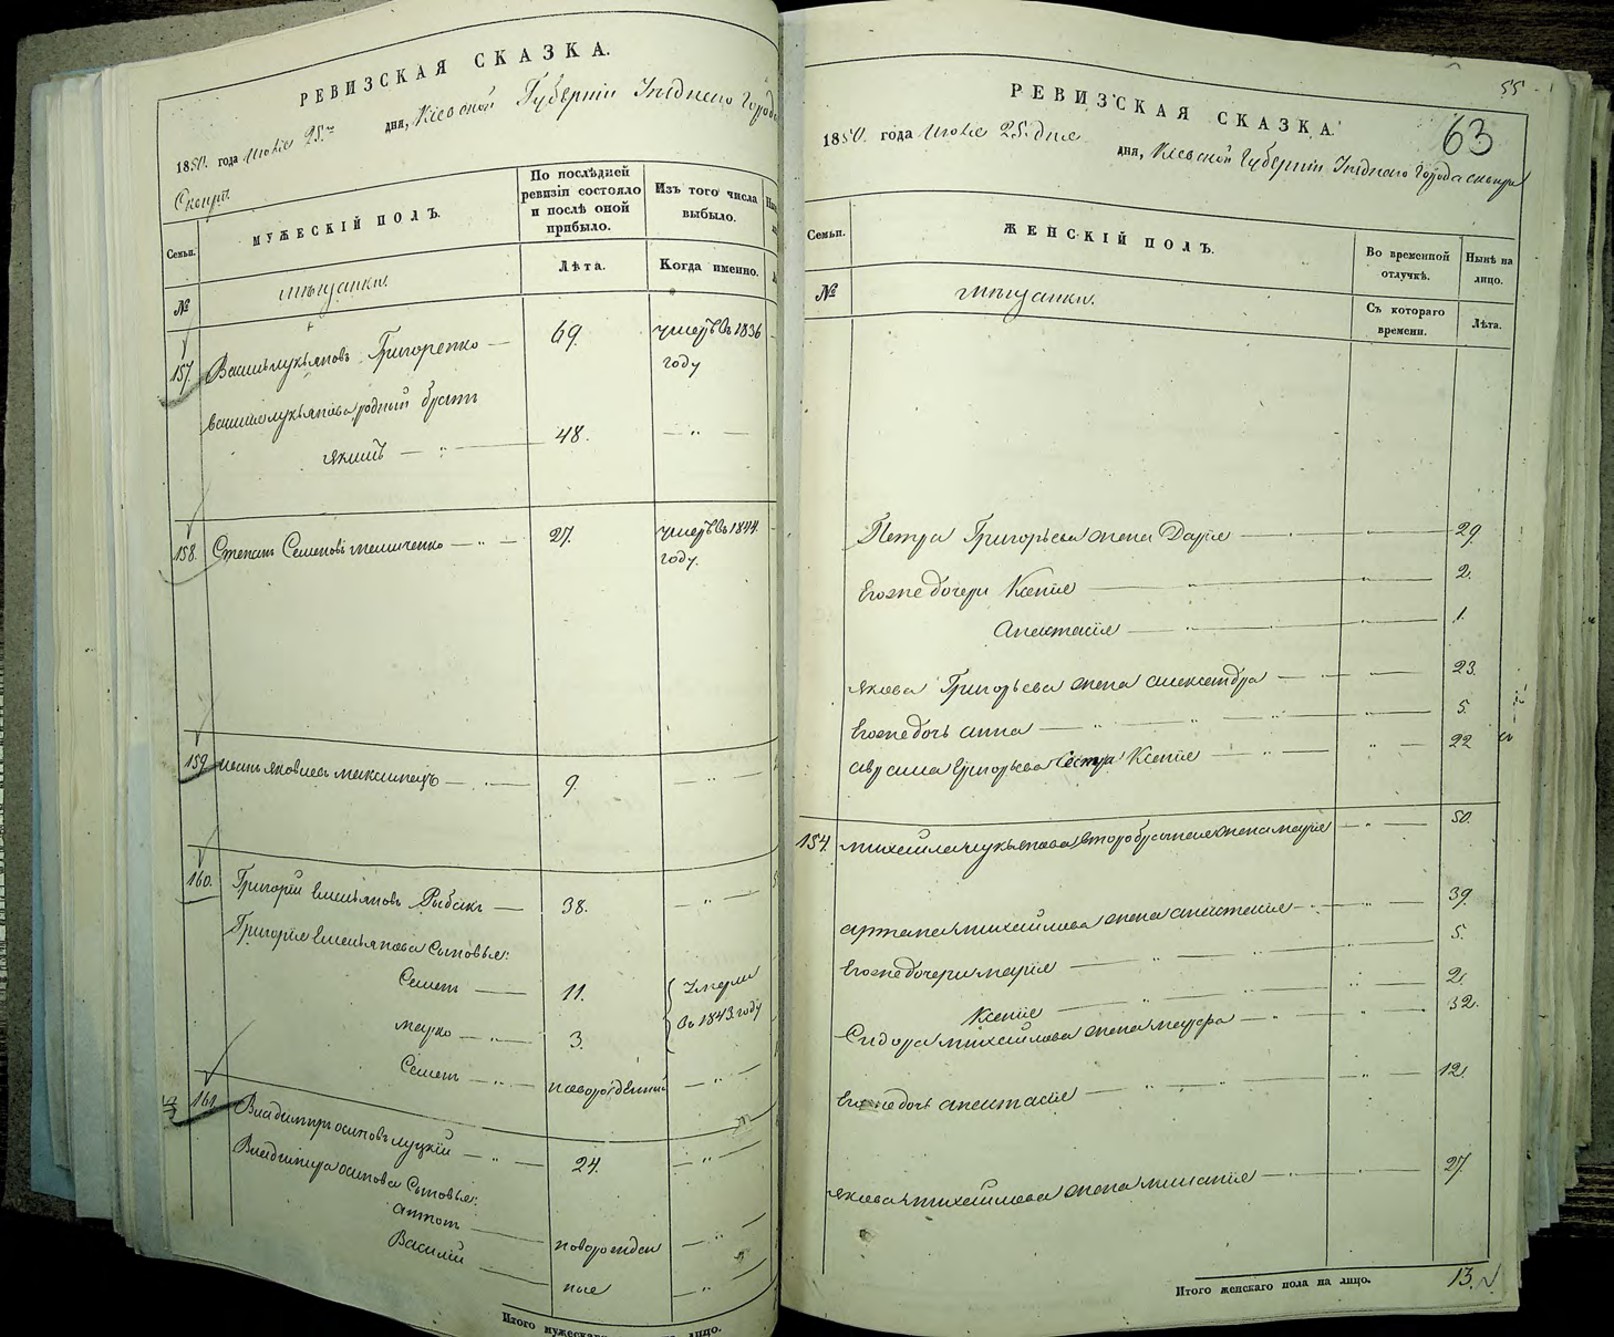 РЕВИЗСКАЯ СКАЗКА.
1850. года июля 25го дня, Кіевской Губерніи Уѣзднаго Города
Сквири.
Семьи.
МУЖЕСКІЙ ПОЛЪ.
По послѣдней ревизіи состояло и послѣ оной прибыло.
Изъ того числа выбыло.
№
мѣщанки.
Лѣта.
Когда именно.
157. Василь Лукьяновъ Григоренко — 69. умеръ въ 1836 году
Василя Лукьянова родный братъ
Якимъ — 48. — " —
158. Степанъ Семеновъ — " — 27. умеръ въ 1844. году.
159 Яковлевъ — " — 9. — " —
160. Григорій Емельяновъ Рыбакъ — 38. — " —
Григорія Емельянова Сыновья:
Семенъ — 11. Умерли
въ 1843. году
Марко — " — 3.
Семенъ — " — новорожденный — " —
161 Владимиръ Осиповъ Луцкій — " — 24. — " —
Владимира Осипова Сыновья:
Антонъ — новорожден — " —
Василій — ные — " —
Итого мужескаго лицо.
55
63
РЕВИЗСКАЯ СКАЗКА.
1850. года июля 25. дня
дня, Кіевской Губерніи Уѣзднаго Города Сквири
Семьи.
ЖЕНСКІЙ ПОЛЪ.
Во временной отлучкѣ.
Нынѣ на лицо.
№
мѣщанки.
Съ котораго времени.
Лѣта.
Петра Григорьева жена Дарія — " — 29.
Его же дочери Ксенія — " — 2.
Анастасія — " — 1.
Якова Григорьева жена Александра — " — 23.
Его же дочь Анна — " — 5.
Григорьева Сестра Ксенія — " — 22
154. Михайла Лукьянова втораго брата жена Марія — " — 50.
Артема Михайлова жена Анастасія — " — 39.
Его же дочери Марія — " — 5.
Ксенія — " — 2.
Сидора Михайлова жена — " — 32.
Его же дочь Анастасія — " — 12.
Якова Михайлова жена — " — 27.
Итого женскаго пола на лицо. 13.